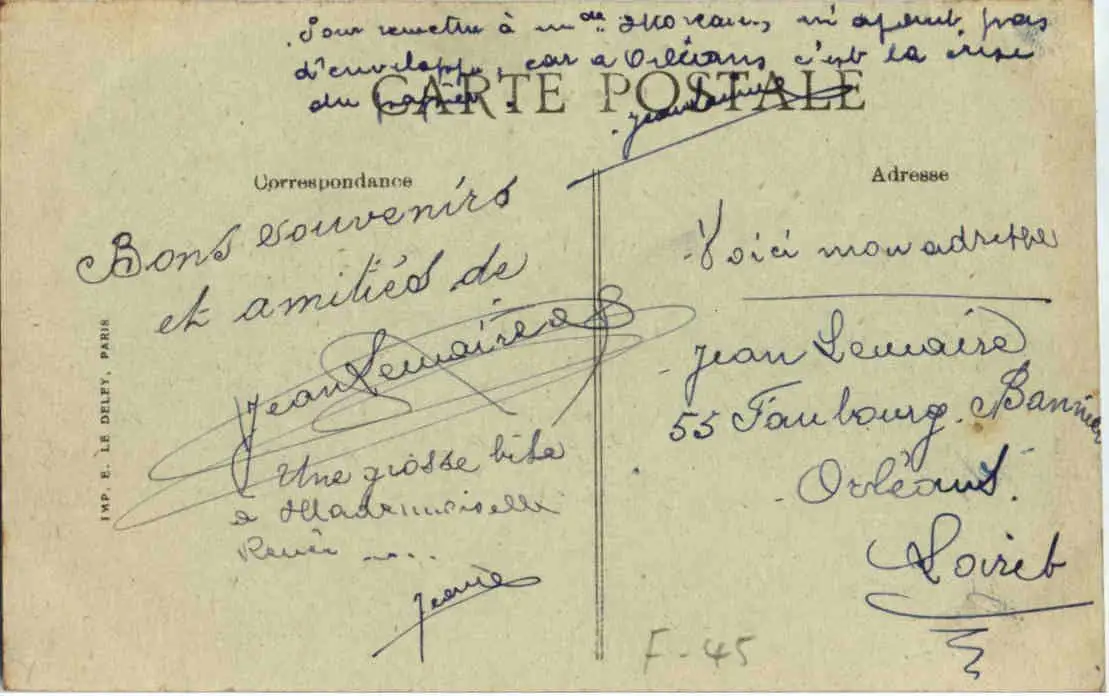 Pour remettre à mde Moreau, n'ayant pas
d'enveloppe, car a Orléans c'est la crise
du papier.
CARTE POSTALE
Correspondance
Bons souvenirs
et amitiés de
Jean Lemaire
Une grosse bise
a Mademoiselle
Renée ....
IMP. E. LE DELEY, PARIS
Adresse
Voici mon adresse
Jean Lemaire
55 Faubourg Bannier
Orléans.
Loiret
F-45